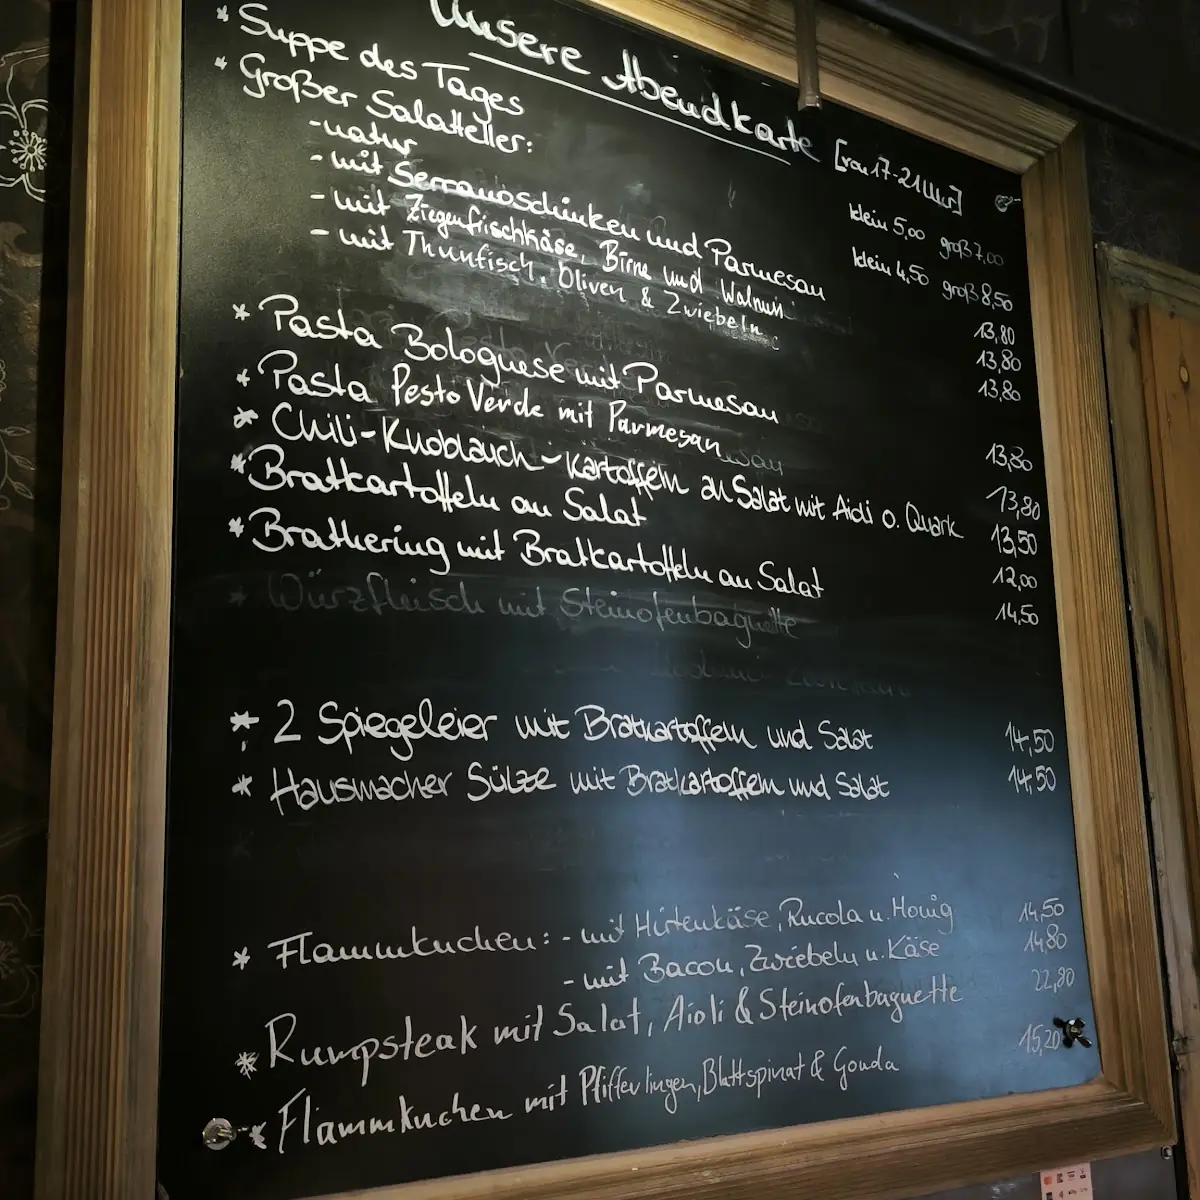 Unsere Abendkarte [von 17-21 Uhr]
* Suppe des Tages klein 5,00 groß 7,00
* Großer Salatteller:
-natur klein 4,50 groß 8,50
- mit Serranoschinken und Parmesan 13,80
- mit Ziegenfrischkäse, Birne und Walnuss 13,80
- mit Thunfisch, Oliven & Zwiebeln 13,80
* Pasta Bolognese mit Parmesan 13,80
* Pasta Pesto Verde mit Parmesan 13,80
* Chili-Knoblauch-Kartoffeln an Salat mit Aioli o. Quark 13,50
* Bratkartoffeln an Salat 12,00
* Brathering mit Bratkartoffeln an Salat 14,50
* Würzfleisch mit Steinofenbaguette
* 2 Spiegeleier mit Bratkartoffeln und Salat 14,50
* Hausmacher Sülze mit Bratkartoffeln und Salat 14,50
* Flammkuchen: - mit Hirtenkäse, Rucola u. Honig 14,50
- mit Bacon, Zwiebeln u. Käse 14,80
* Rumpsteak mit Salat, Aioli & Steinofenbaguette 22,80
* Flammkuchen mit Pfifferlingen, Blattspinat & Gouda 15,20